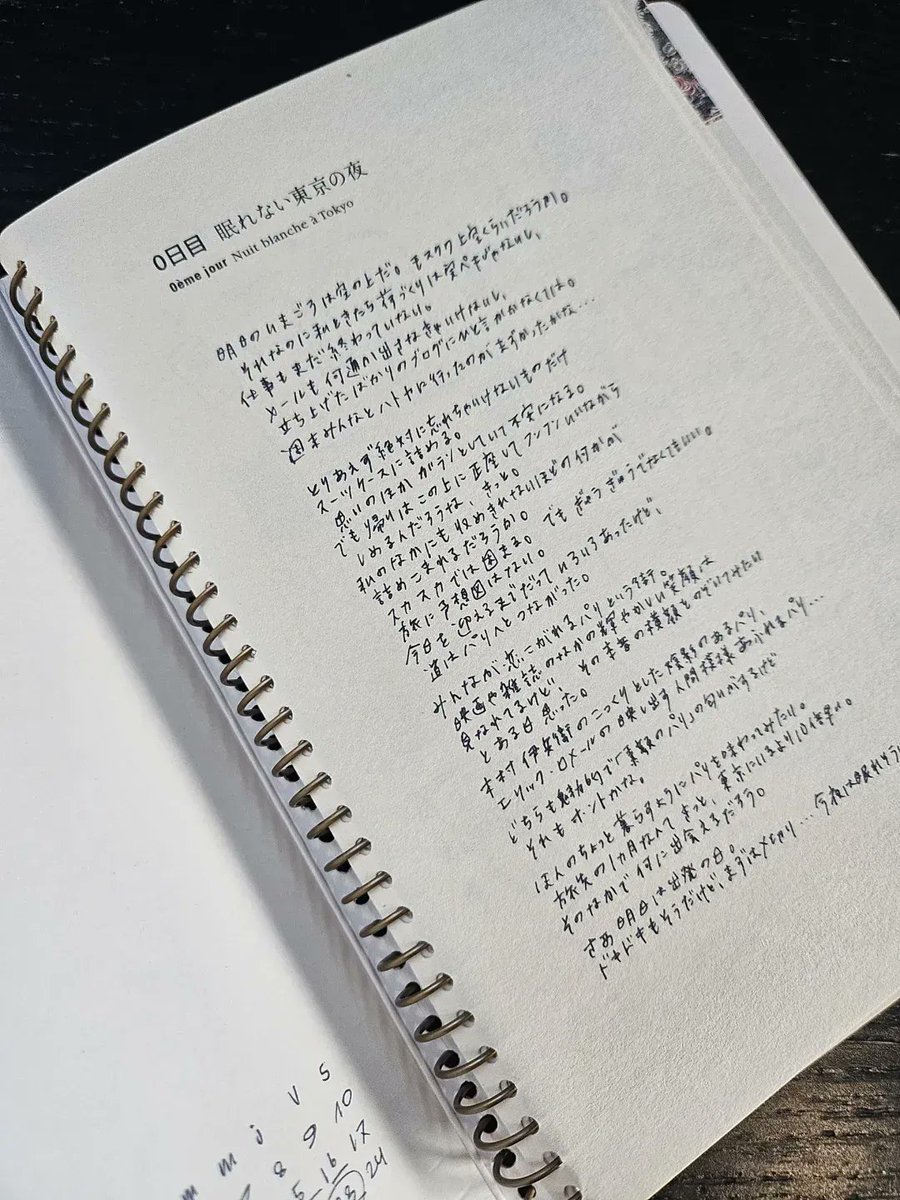 0日目 眠れない東京の夜
0ème jour Nuit blanche à Tokyo
明日のいまごろは空の上だ。モスクワ上空くらいだろうか。
それなのに私ときたら荷づくりは完ペキじゃないし、
仕事もまだ終わっていない。
メールも何通か出さなきゃいけないし、
立ち上げたばかりのブログにひと言かかなくては。
週末みんなとハトヤに行ったのがまずかったかな…
とりあえず絶対に忘れちゃいけないものだけ
スーツケースに詰める。
思いのほかガランとしていて不安になる。
でも帰りはこの上に正座してフンフンいいながら
しめるんだろうな、きっと。
私のなかにも収めきれないほどの何かが
詰めこまれるだろうか。
スカスカでは困る。でもぎゅうぎゅうでなくてもいい。
旅に予想図はない。
今日を迎えるまでだっていろいろあったけど、
道はパリへとつながった。
みんなが恋こがれるパリという街。
映画や雑誌のなかの輝やかしい笑顔は
見なれてるけど その本音の横顔をのぞいてみたい
とある日思った。
木村伊兵衛のこっくりとした陰影のあるパリ、
エリック・ロメールの映し出す人間模様あふれるパリ…
どちらも魅力的で「素顔のパリ」の匂いがするけど
それもホントかな。
ほんのちょっと暮らすようにパリを味わってみたい。
旅先の1カ月なんてきっと、東京にいるより10倍早い。
そのなかで何に出会えるだろう。
さあ明日は出発の日。
ドキドキもそうだけど、まずはメモから… 今夜は眠れそう
m m j v s
7 8 9 10
5 16 17
23 24